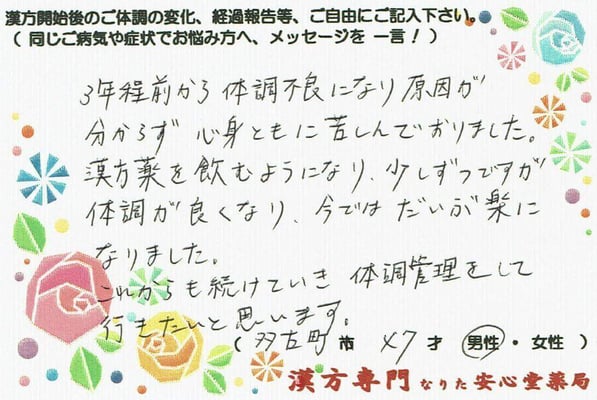 漢方開始後のご体調の変化、経過報告等、ご自由にご記入下さい。
（同じご病気や症状でお悩み方へ、メッセージを一言！）
3年程前から体調不良になり原因が
分からず心身ともに苦しんでおりました。
漢方薬を飲むようになり、少しずつですが
体調が良くなり、今ではだいぶ楽に
なりました。
これからも続けていき体調管理をして
行きたいと思います。
（ 町 市 47才 男性・女性 ）
漢方専門なりた安心堂薬局